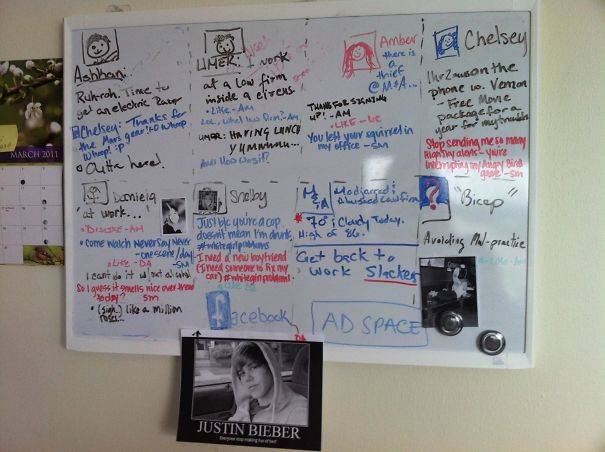 MARCH 2011
Ashhan:
Ruh-roh. Time to
get an electric Razor
Chelsey: Thanks for
the Mars gear! XD whoop
whoop! :p
Outta here!
UMER: I work
at a law firm
inside a circus
- Like - AM
UMER: HAVING LUNCH
Yummmm...
Amber
there is
a
thief
@ M&A...
THANKS FOR SIGNING
UP! - AM
- LIKE -
You left your squirrel in
my office - SM
Chelsey
on the
phone w. Verizon
- Free Movie
package for a
year for my troubles
Stop sending me so many
Mighty alerts - you're
interrupting my Angry Birds
game - SM
Daniela
at work...
- DISLIKE - AM
Come Watch Never Say Never
- one scene/day
- SM
- LIKE - DA
I can't do it w/out alcohol
So I guess it smells nice over there
today? SM
(sigh..) like a million
roses...
Shelby
Just b/c you're a cop
doesn't mean I'm drunk.
#whitegirlproblems
I need a new boyfriend
(I need someone to fix my
car) #whitegirlproblems
M&A
70° | Cloudy Today.
High of 86.
Get back to
work Slacker
"Bicep"
Avoiding Mal-practice
facebook
AD SPACE
DA
JUSTIN BIEBER